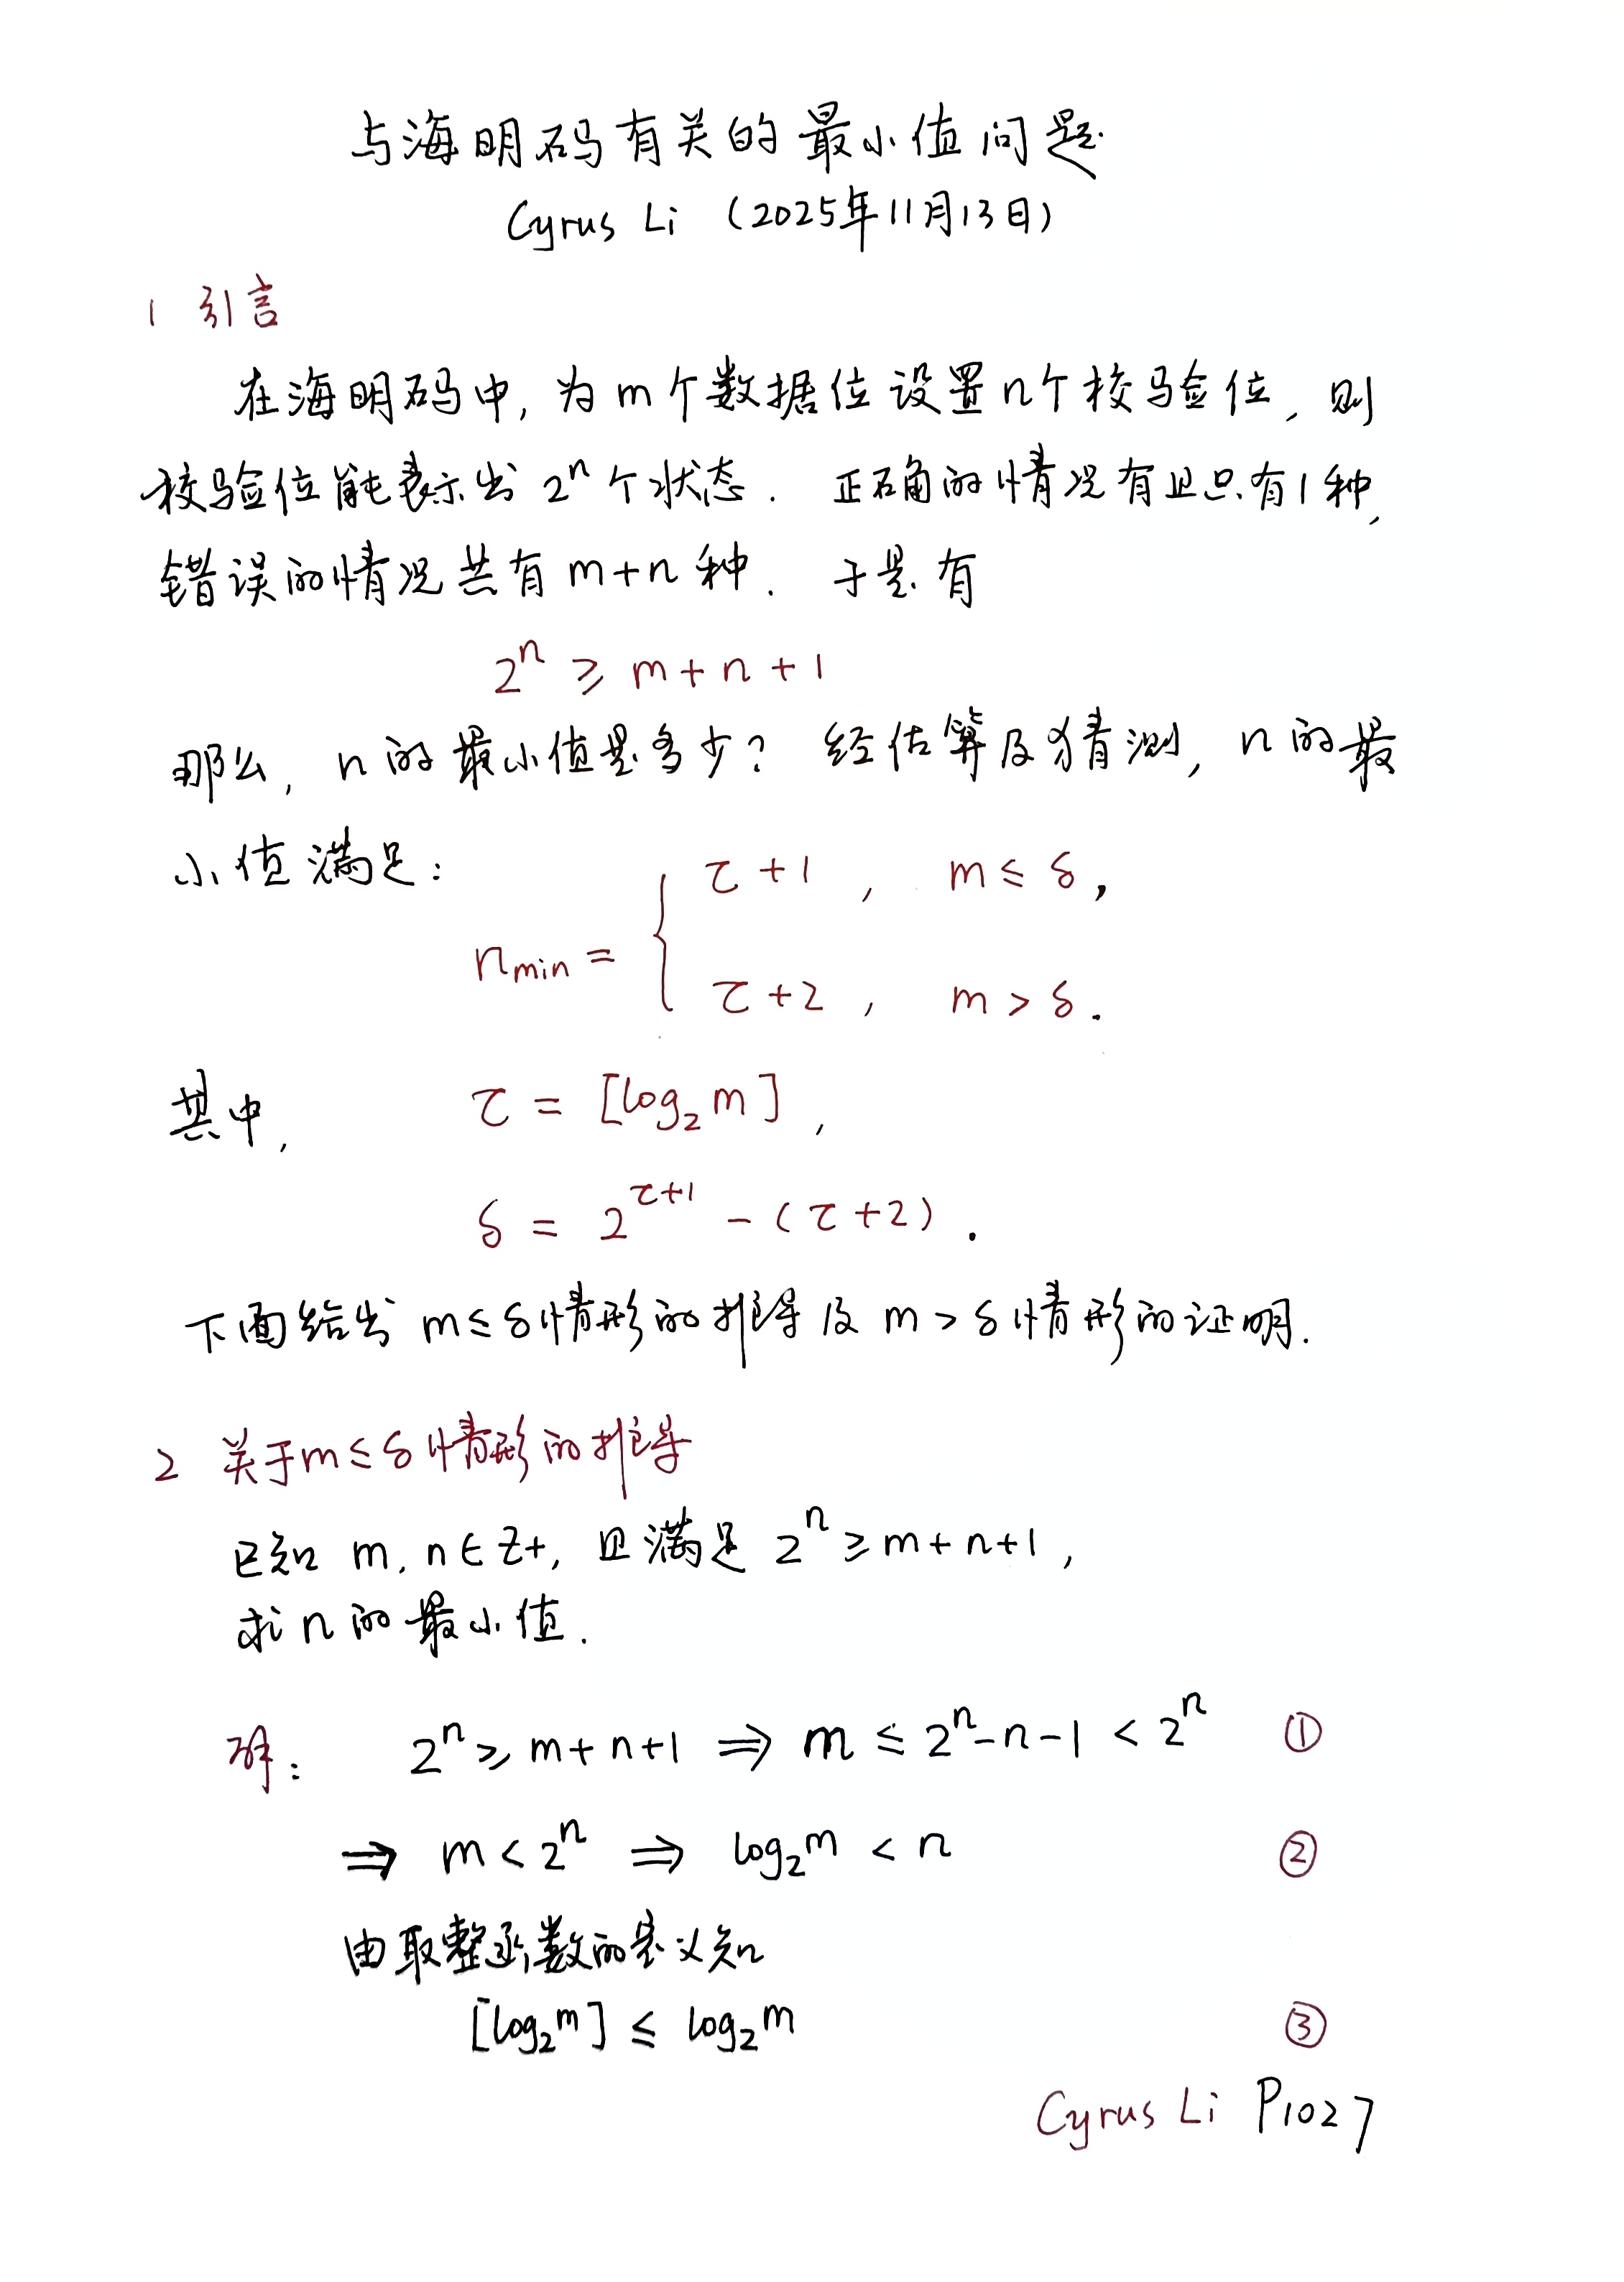 与海明码有关的最小值问题
Cyrus Li (2025年11月13日)
1 引言
在海明码中, 为m个数据位设置n个校验位, 则
校验位能表示出 2ⁿ个状态. 正确的情况有且只有1种,
错误的情况共有 m+n 种. 于是有
2ⁿ ≥ m+n+1
那么, n的最小值是多少? 经估算及猜测, n的最
小值满足:
n_min = { τ+1, m≤δ,
τ+2, m>δ.
其中, τ = [log₂m],
δ = 2^(τ+1) - (τ+2).
下面给出 m≤δ情形的推导及 m>δ情形的证明.
2 关于m≤δ情形的推导
已知 m, n∈Z+, 且满足 2ⁿ≥m+n+1,
求n的最小值.
解: 2ⁿ≥m+n+1 ⇒ m ≤ 2ⁿ-n-1 < 2ⁿ ①
⇒ m<2ⁿ ⇒ log₂m < n ②
由取整函数的定义知
[log₂m] ≤ log₂m ③
Cyrus Li P1027